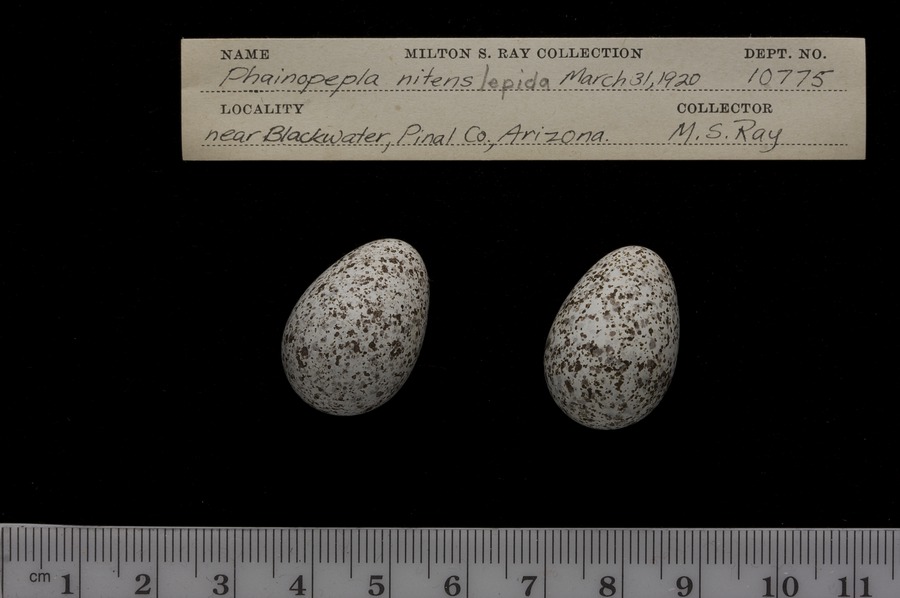 NAME MILTON S. RAY COLLECTION DEPT. NO.
Phainopepla nitens lepida March 31, 1920 10775
LOCALITY COLLECTOR
near Blackwater, Pinal Co., Arizona. M. S. Ray
cm 1 2 3 4 5 6 7 8 9 10 11